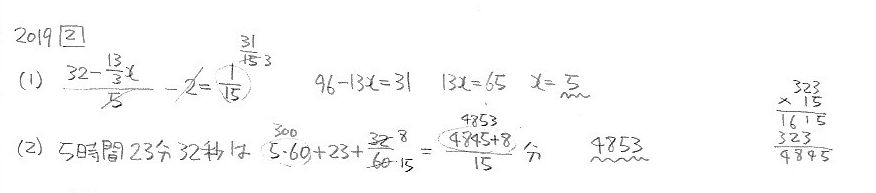 2019 [2]
(1) (32-13/3x)/5 - 2 = 1/15 31/15 3 96-13x=31 13x=65 x=5
(2) 5時間23分32秒は 5・60+23+32/60 300 8 15 = (4845+8)/15 4853 分 4853
323
×15
1615
323
4845